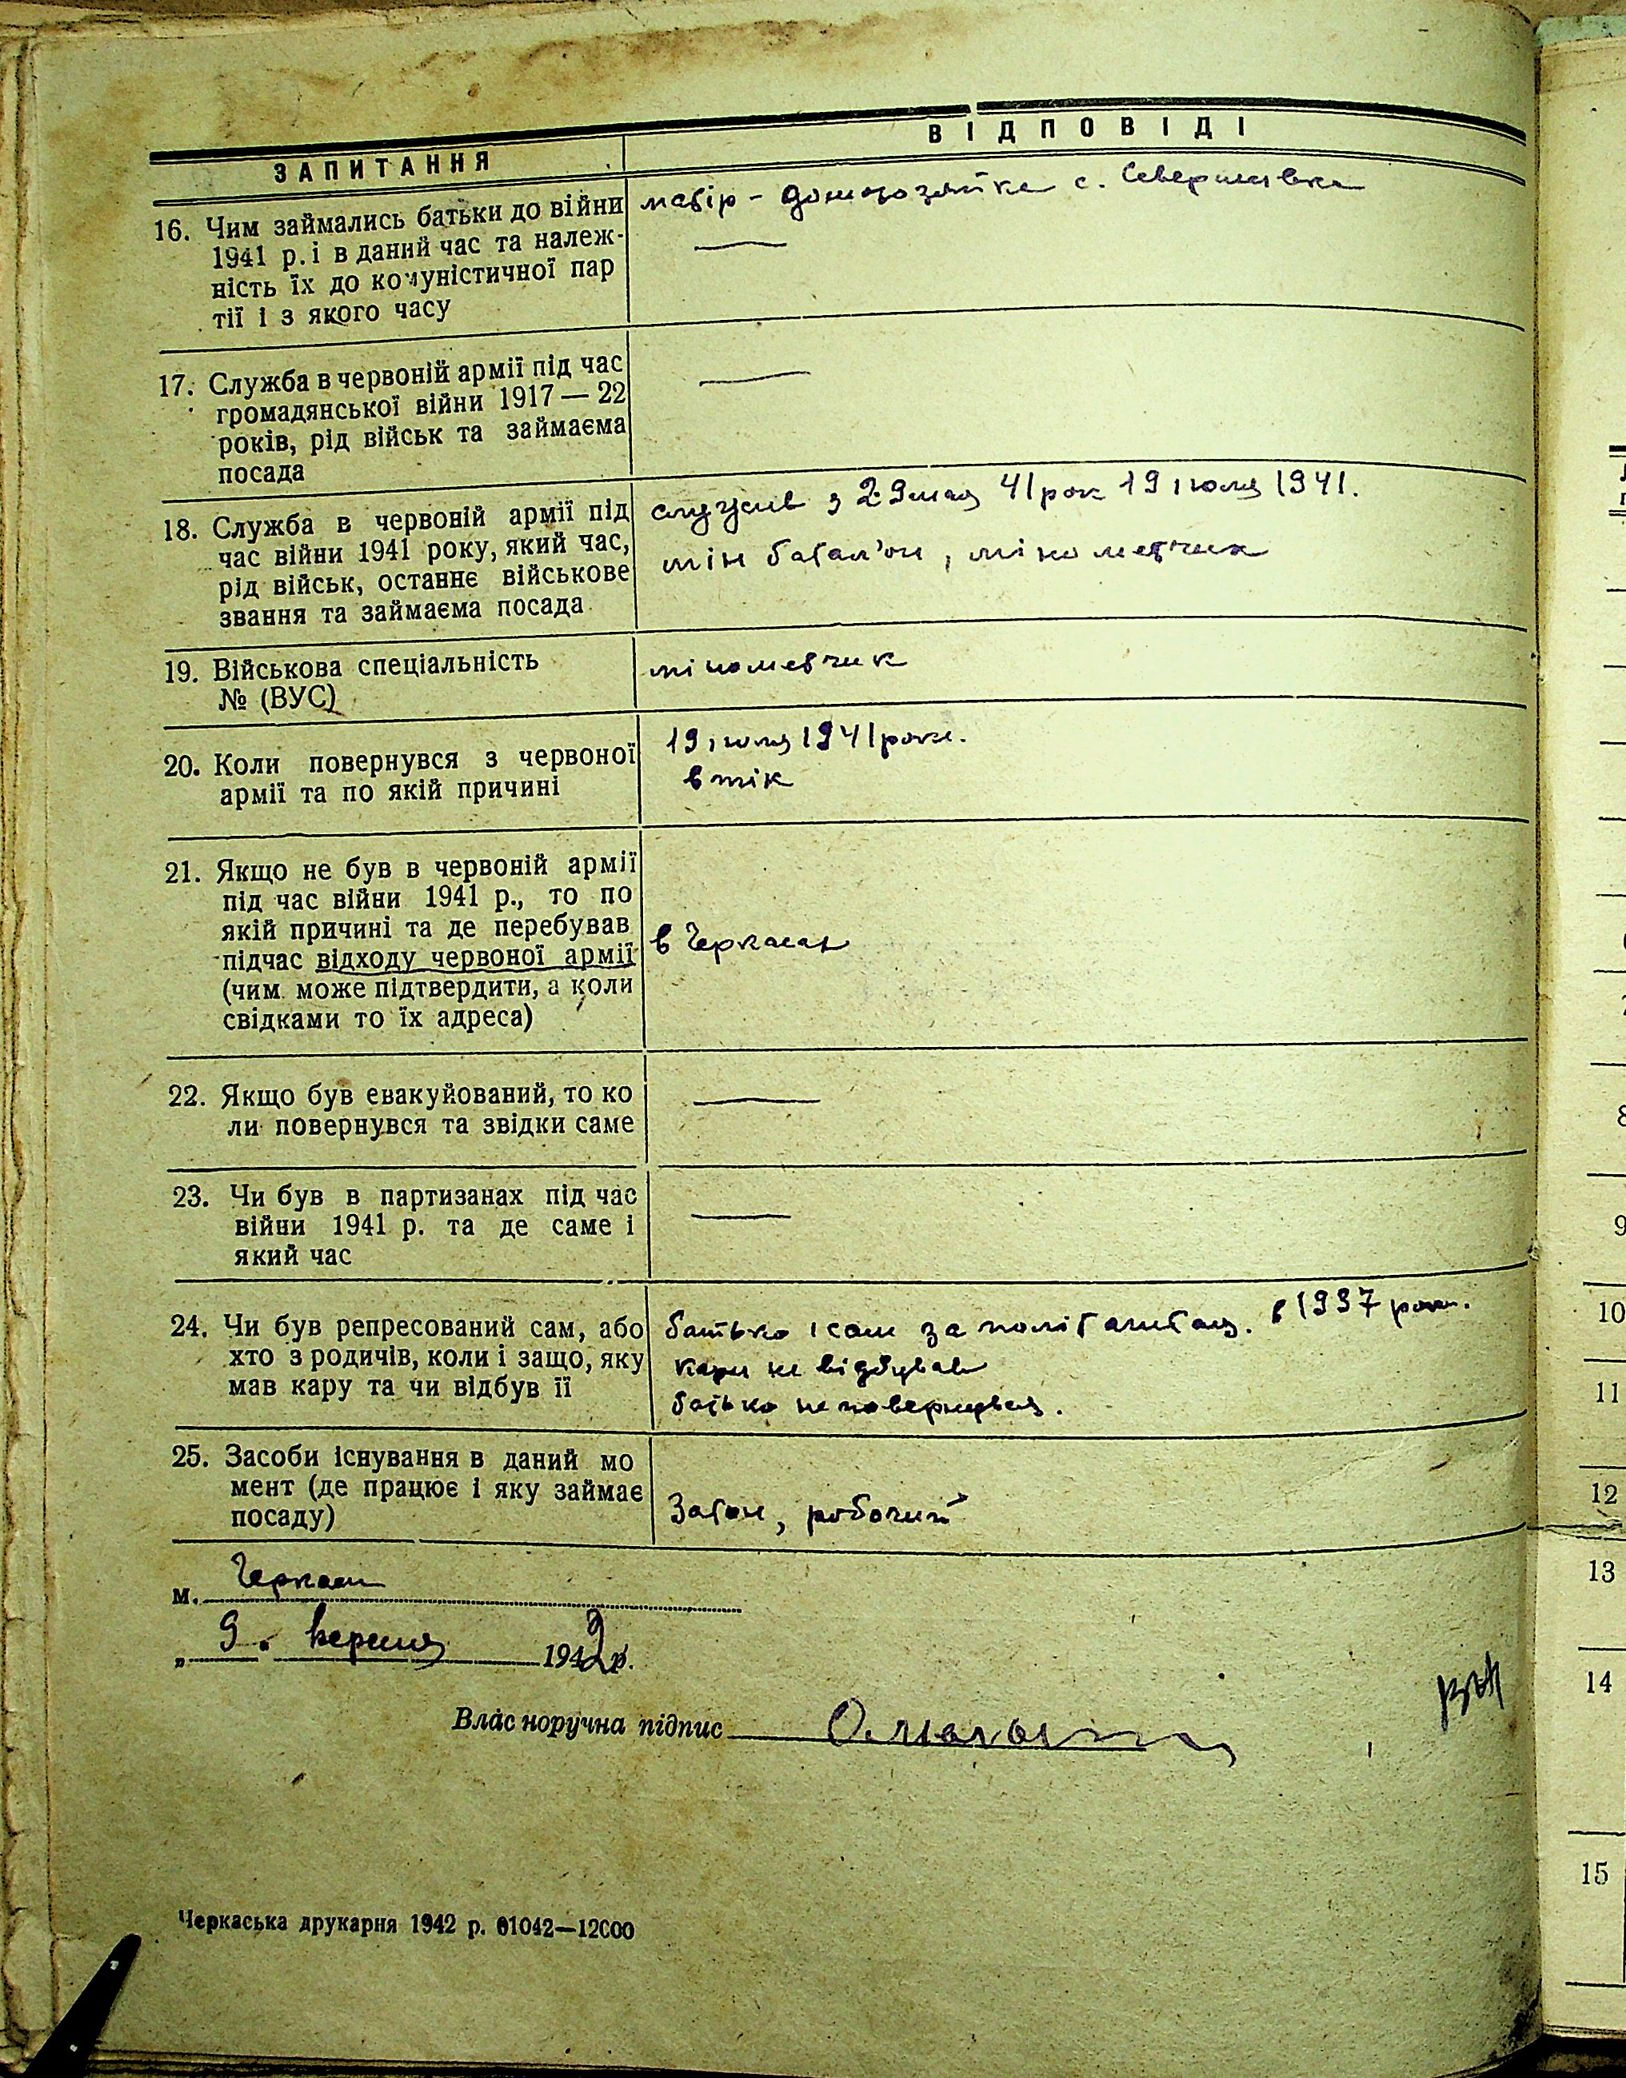 ЗАПИТАННЯ
ВІДПОВІДІ
16. Чим займались батьки до війни
1941 р. і в даний час та належ-
ність їх до комуністичної пар
тії і з якого часу
матір - домохозяйка с.
17. Служба в червоній армії під час
громадянської війни 1917 — 22
років, рід військ та займаєма
посада
18. Служба в червоній армії під
час війни 1941 року, який час,
рід військ, останнє військове
звання та займаєма посада
служив з 29 мая 41 рок 19 июля 1941.
мін батал'он, мінометчик
19. Військова спеціальність
№ (ВУС)
мінометчик
20. Коли повернувся з червоної
армії та по якій причині
19 июля 1941 роки.
втік
21. Якщо не був в червоній армії
під час війни 1941 р., то по
якій причині та де перебував
підчас відходу червоної армії
(чим може підтвердити, а коли
свідками то їх адреса)
в Черкасах
22. Якщо був евакуйований, то ко
ли повернувся та звідки саме
23. Чи був в партизанах під час
війни 1941 р. та де саме і
який час
24. Чи був репресований сам, або
хто з родичів, коли і защо, яку
мав кару та чи відбув її
батько і сам за в 1937 роки.
кари не відбував
батько не повернувся.
25. Засоби існування в даний мо
мент (де працює і яку займає
посаду)
Затон, робочий
м. Черкаси
„ 9. вересня 1942 р.
Власноручна підпис
Черкаська друкарня 1942 р. 01042—12000
8
9
10
11
12
13
14
15